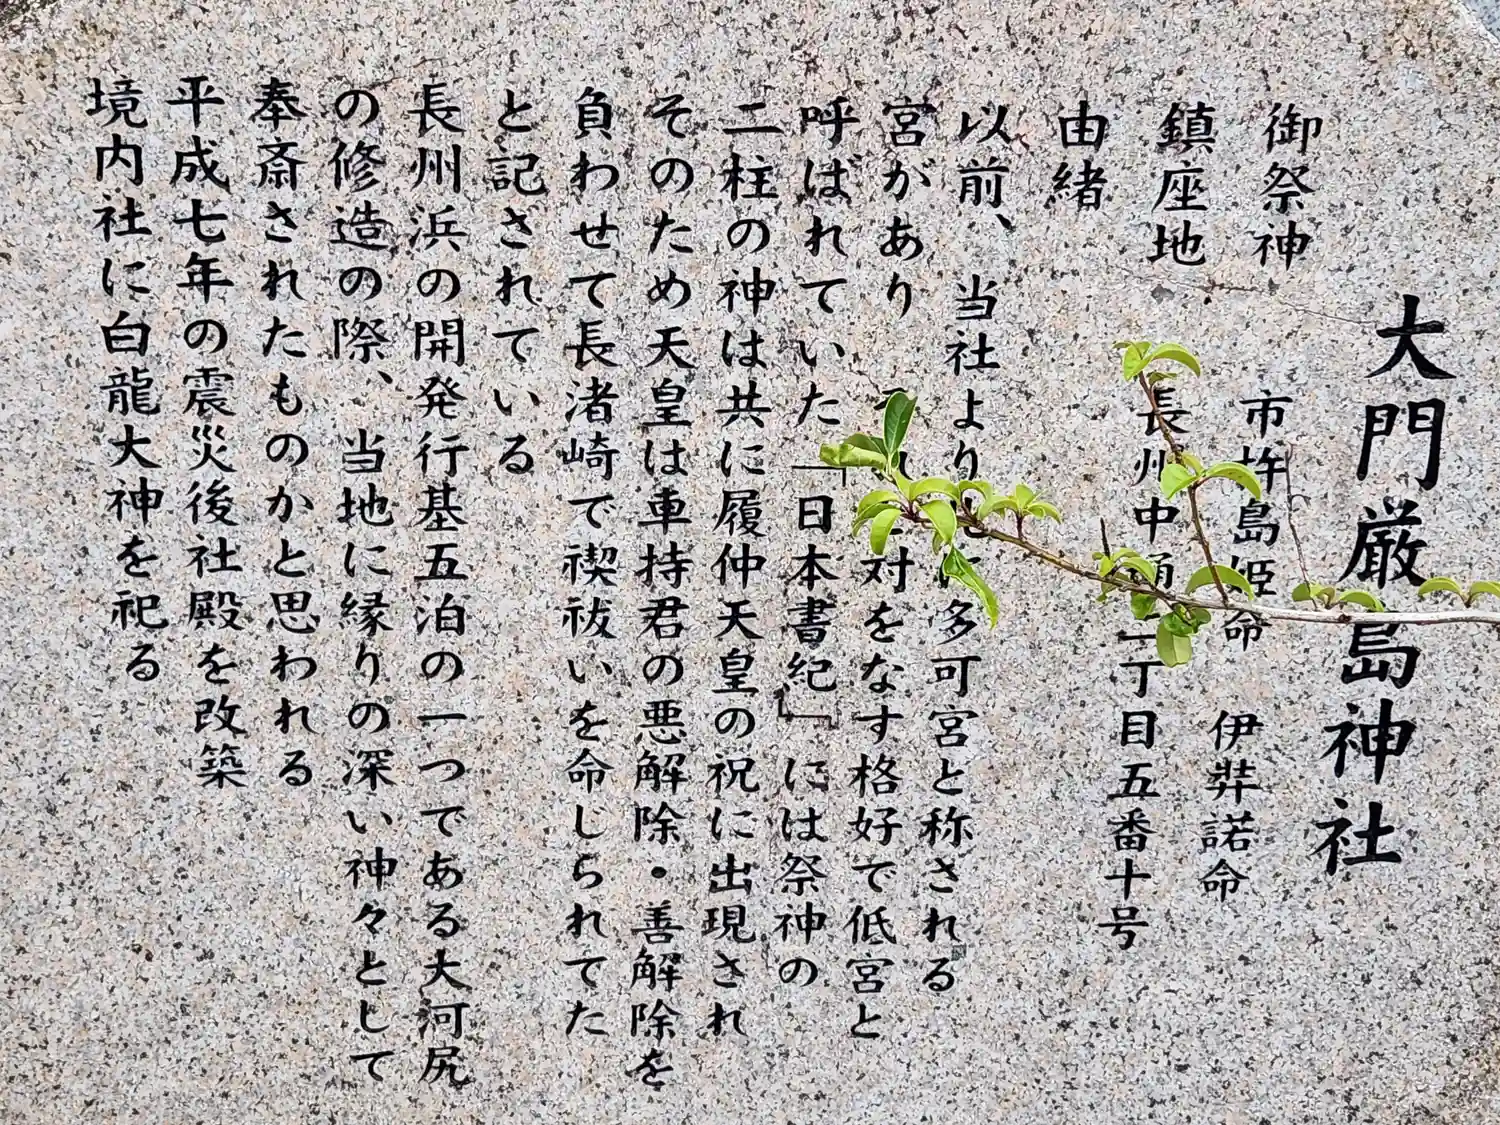 大門厳島神社
御祭神 市杵島姫命 伊弉諾命
鎮座地 長州中通 丁目五番十号
由緒
以前、当社より 多可宮と称される
宮があり 対をなす格好で低宮と
呼ばれていた『日本書紀』には祭神の
二柱の神は共に履仲天皇の祝に出現され
そのため天皇は車持君の悪解除・善解除を
負わせて長渚崎で禊祓いを命じられてた
と記されている
長州浜の開発行基五泊の一つである大河尻
の修造の際、当地に縁りの深い神々として
奉斎されたものかと思われる
平成七年の震災後社殿を改築
境内社に白龍大神を祀る